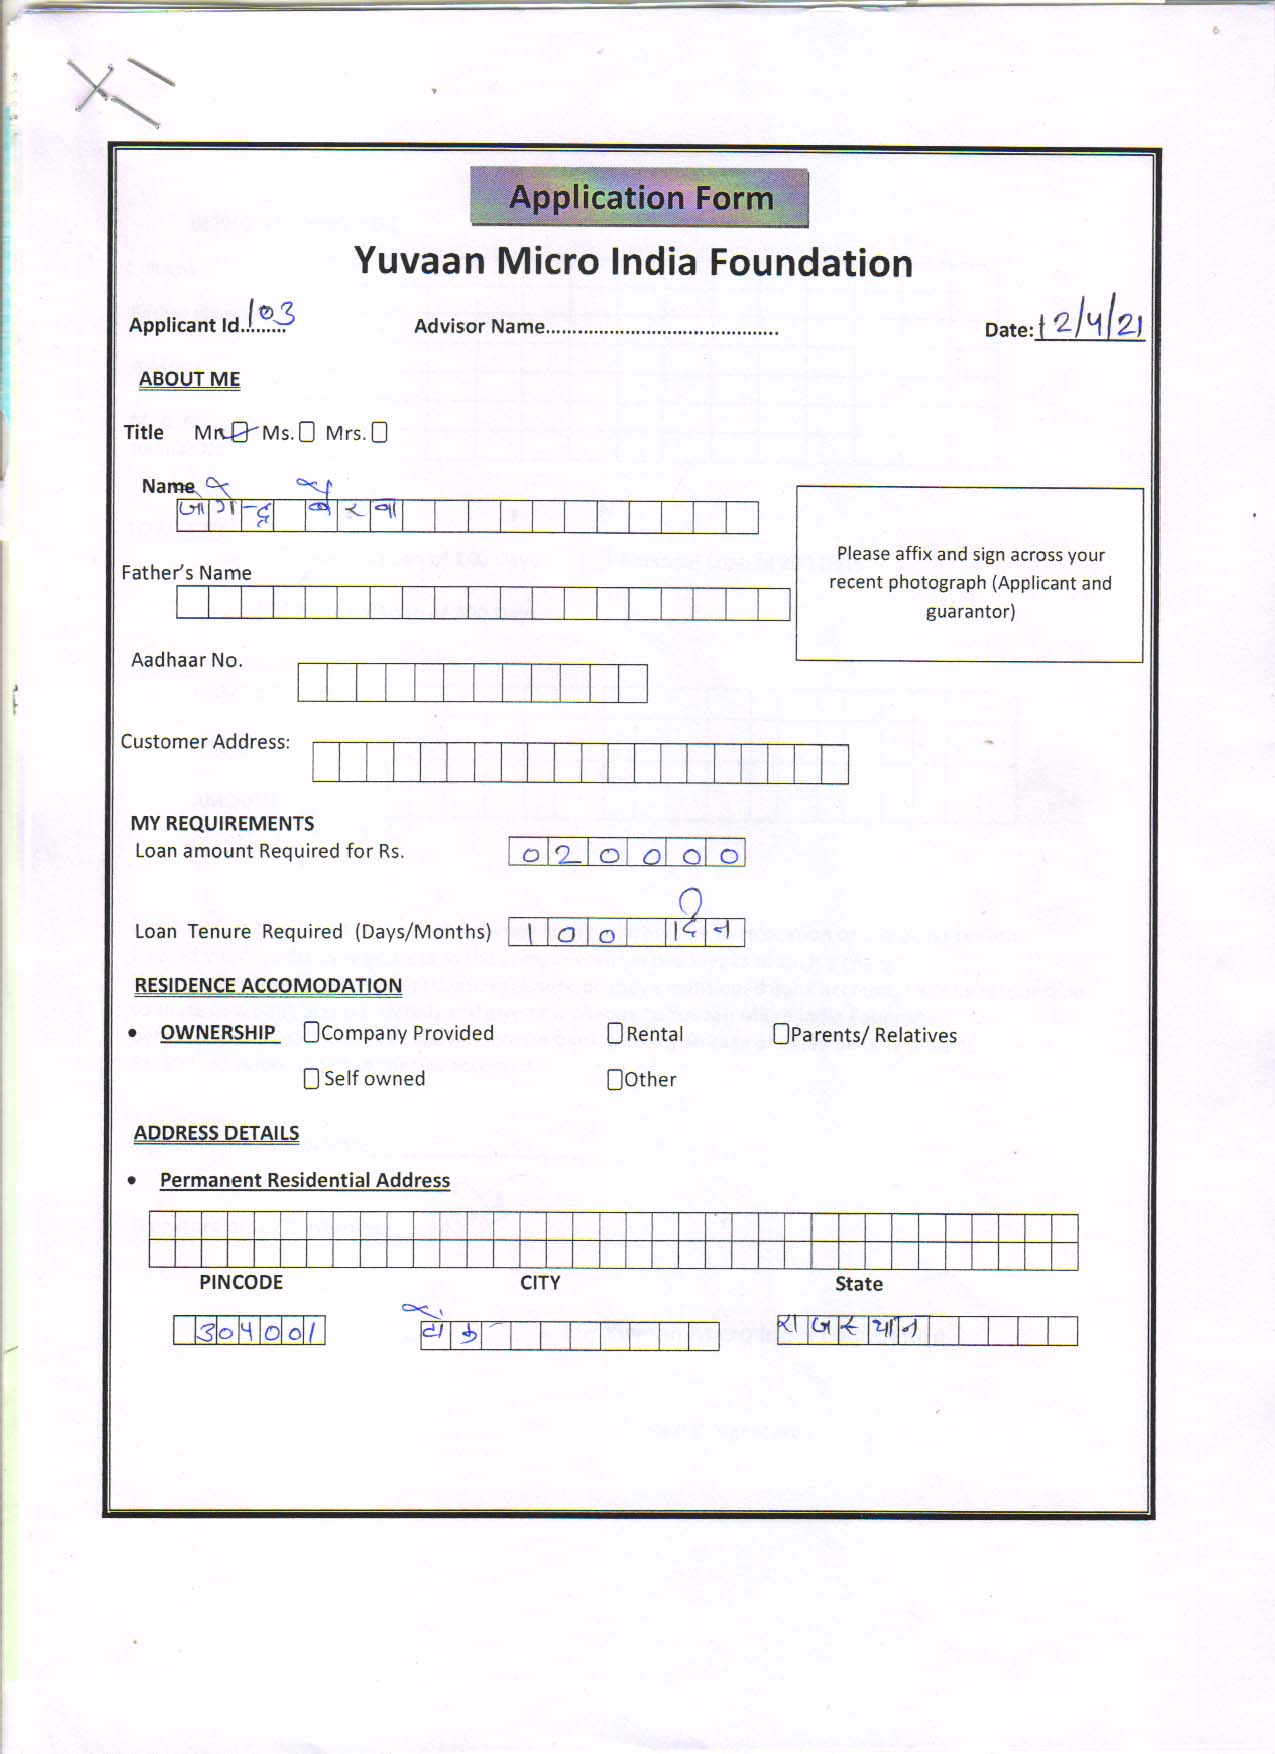 Application Form
Yuvaan Micro India Foundation
Applicant Id.........103 Advisor Name.......................................... Date: 12/4/21
ABOUT ME
Title Mr. Ms. Mrs.
Name
जोगेन्द्र बैरवा
Please affix and sign across your
recent photograph (Applicant and
guarantor)
Father's Name
Aadhaar No.
Customer Address:
MY REQUIREMENTS
Loan amount Required for Rs. 020000
Loan Tenure Required (Days/Months) 100 दिन
RESIDENCE ACCOMODATION
• OWNERSHIP Company Provided Rental Parents/ Relatives
Self owned Other
ADDRESS DETAILS
• Permanent Residential Address
PINCODE CITY State
304001 टोंक राजस्थान